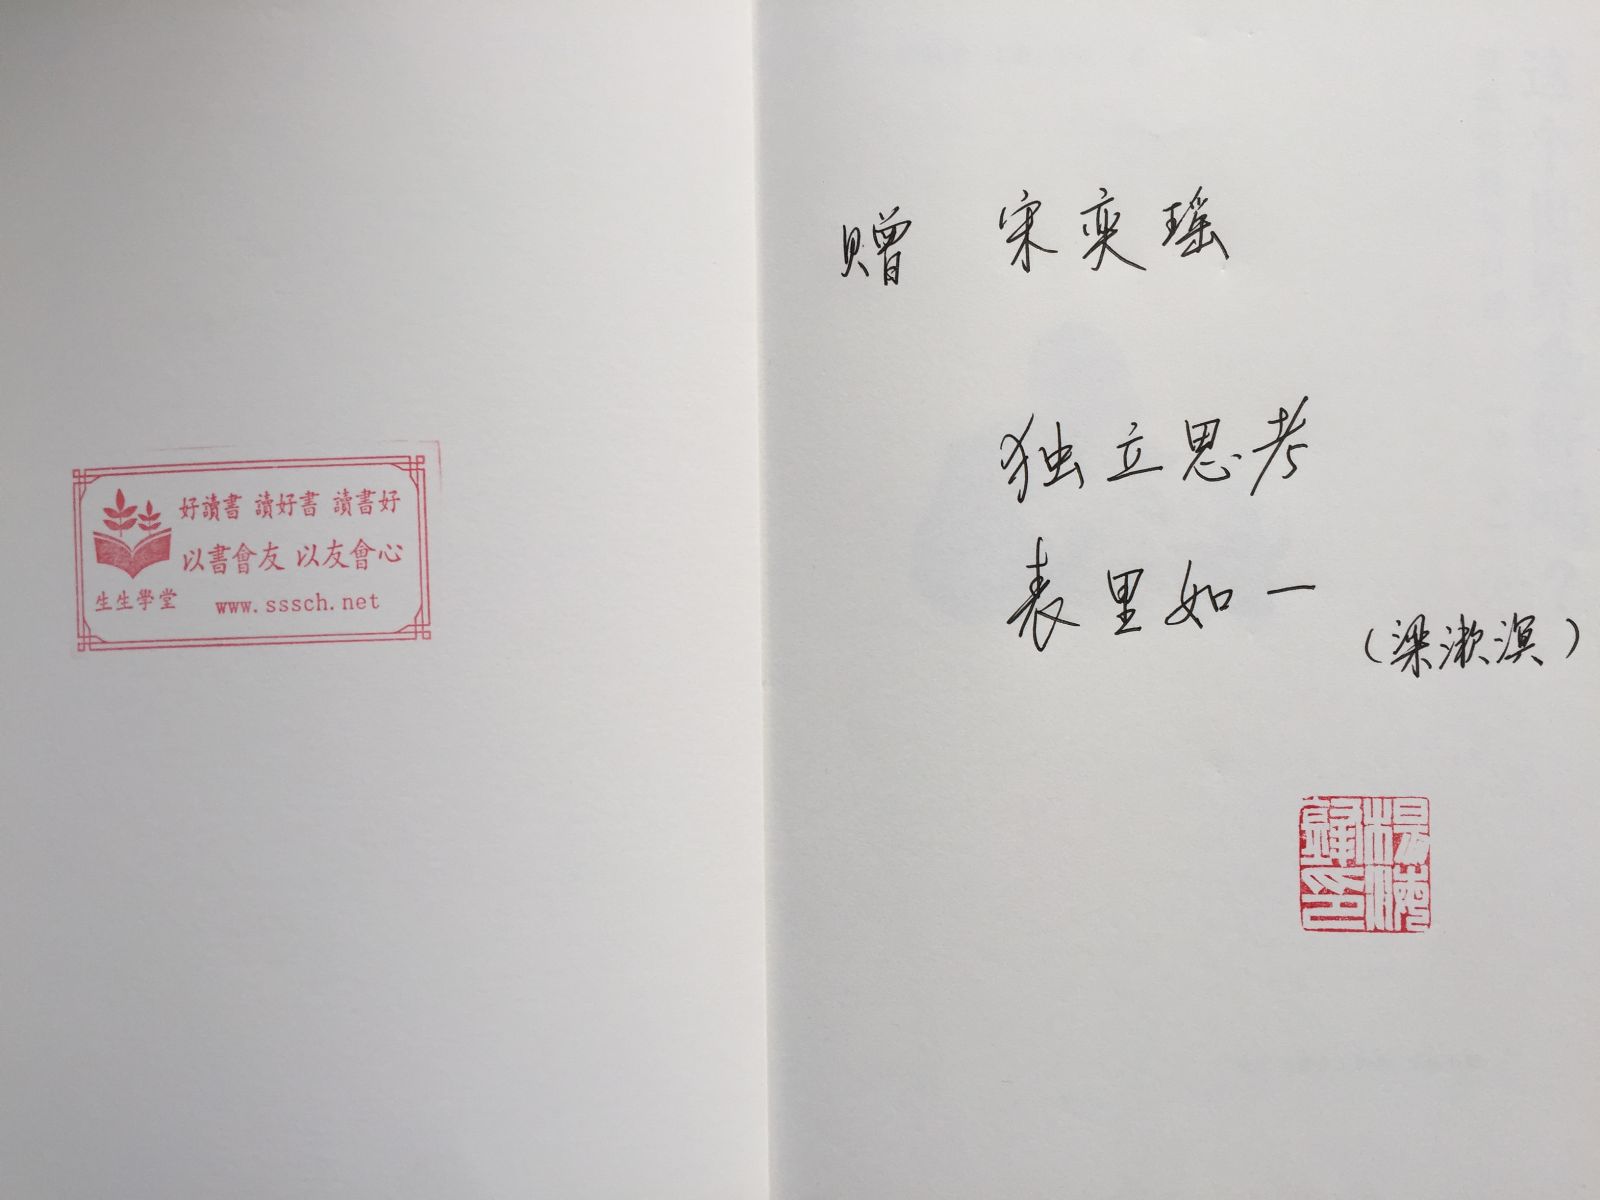 好讀書 讀好書 讀書好
以書會友 以友會心
生生學堂 www.sssch.net
赠 宋奕瑶
独立思考
表里如一
（梁漱溟）